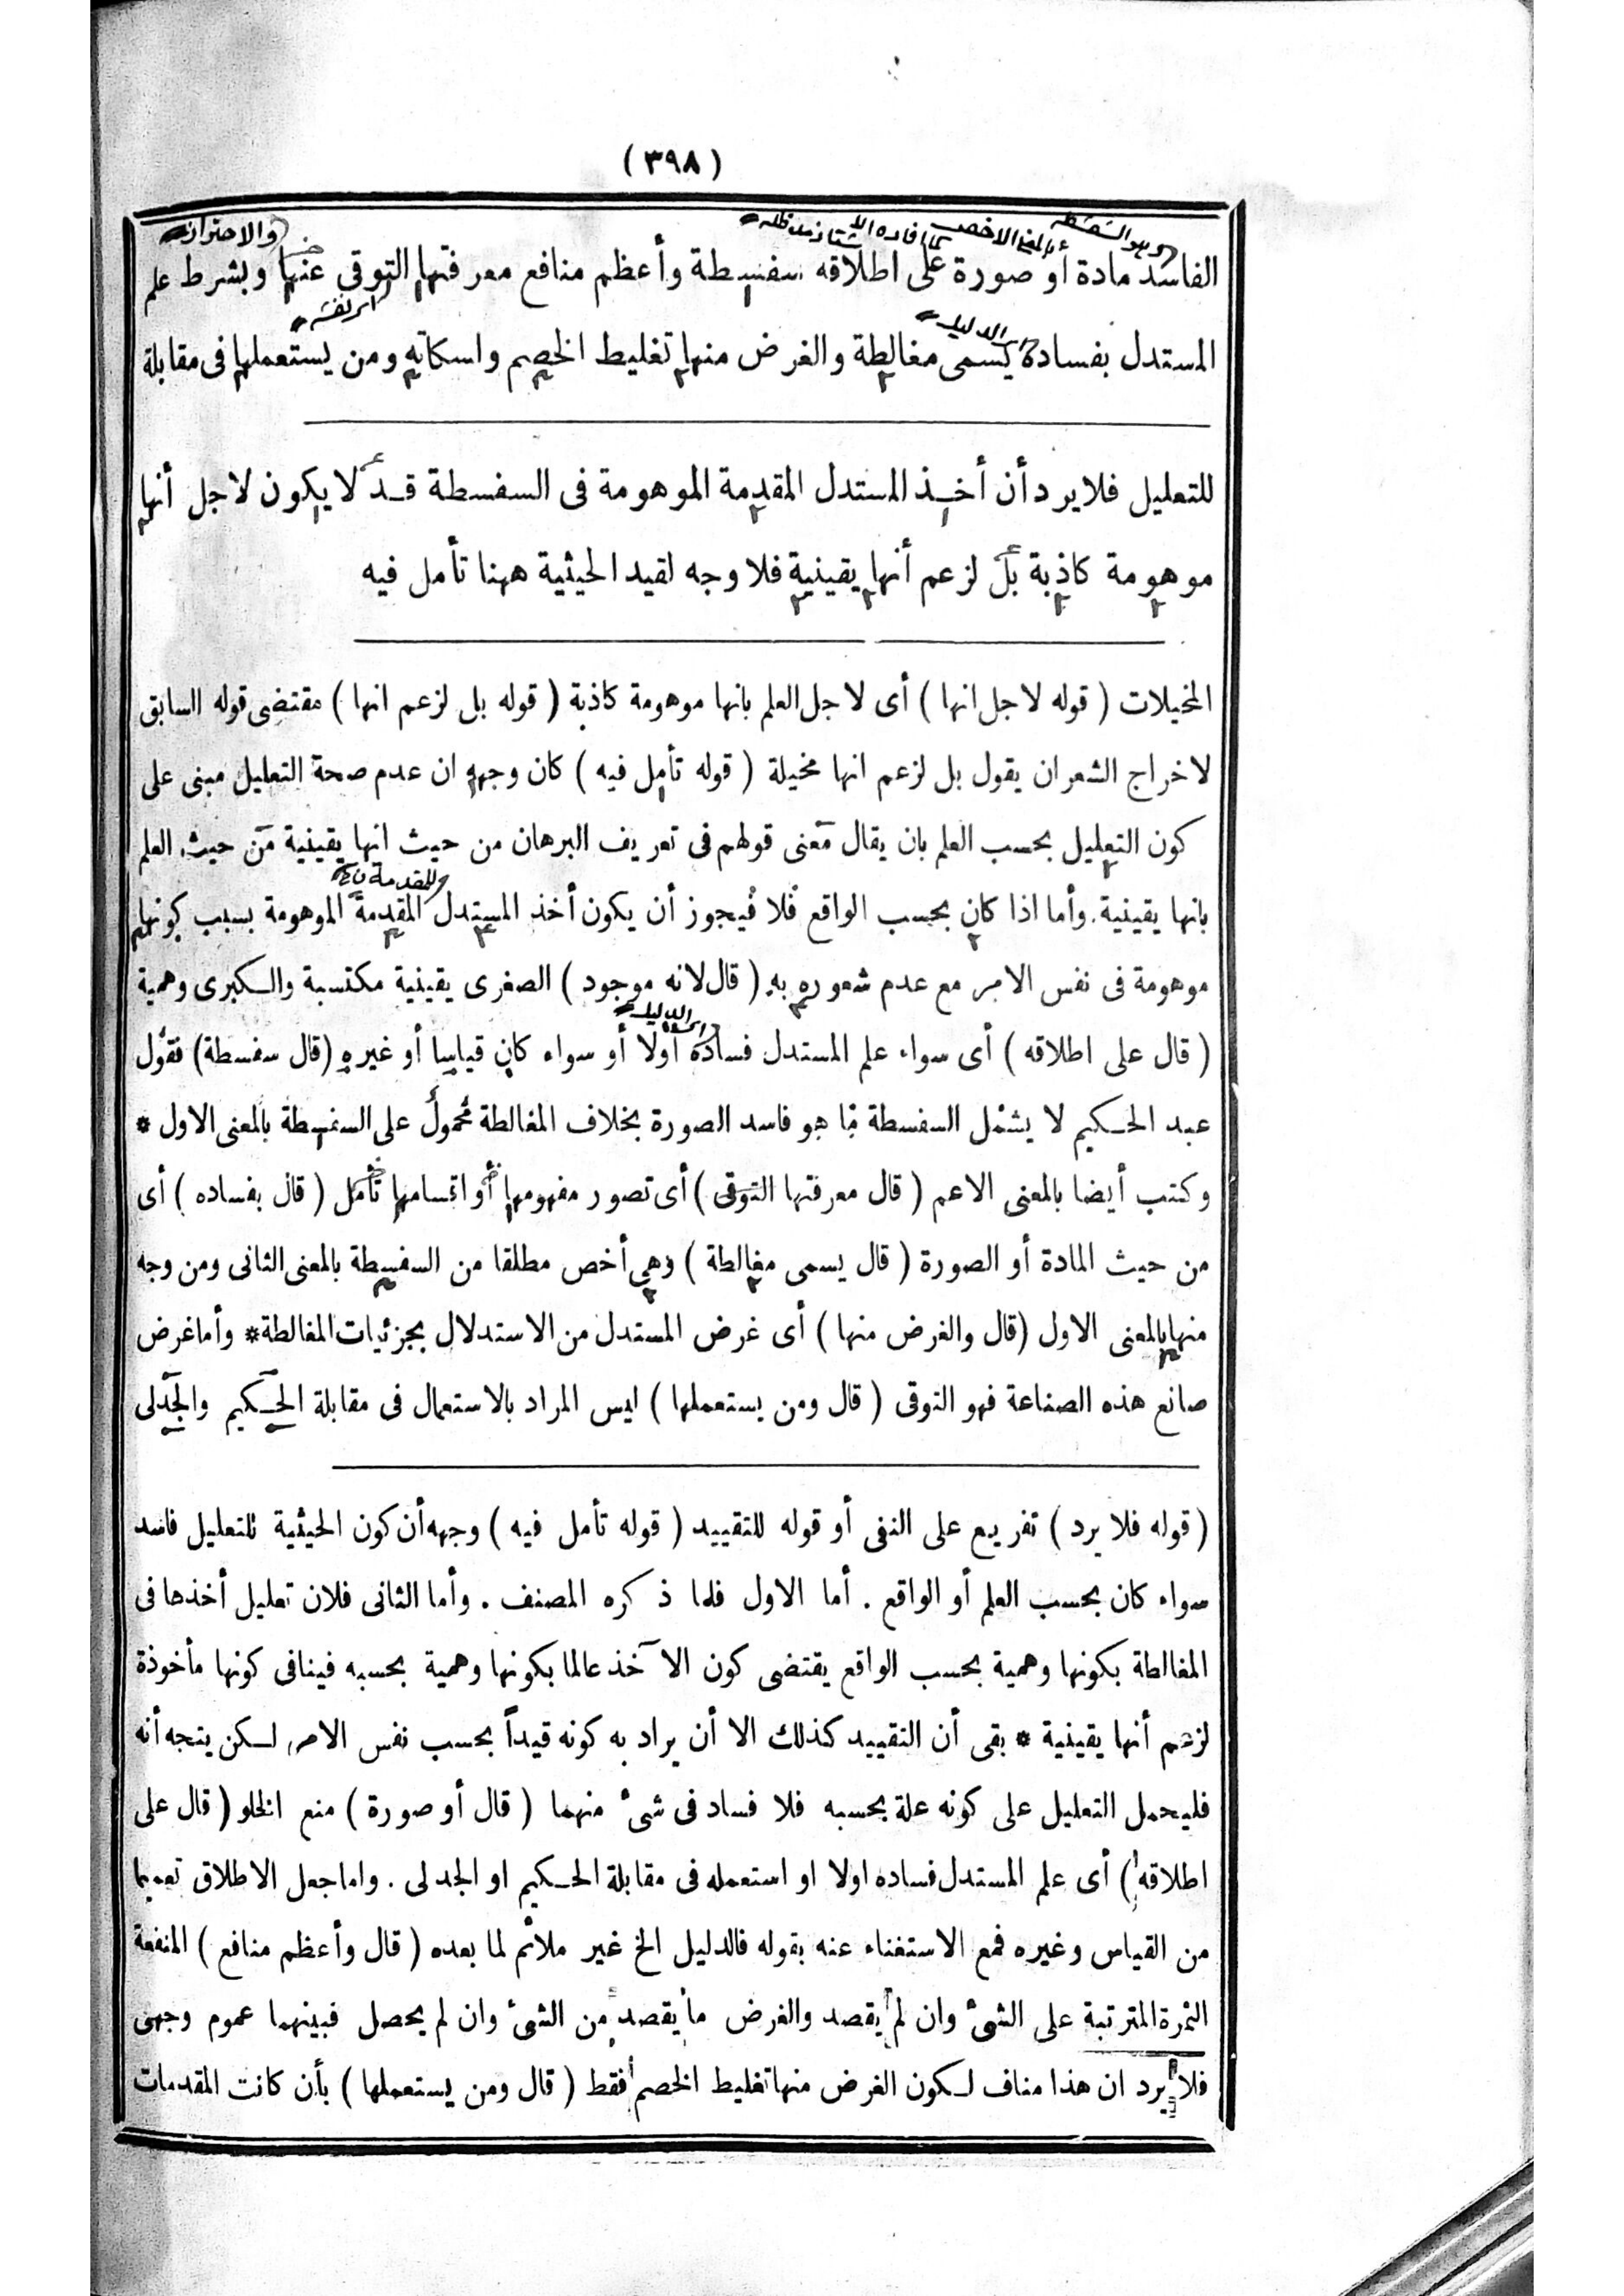 ( ٣٩٨ )
والاحتراز
الفاسد مادة أو صورة على اطلاقه سفسطة وأعظم منافع معرفتها التوقى عنها وبشرط علم
الدليل
المستدل بفساده يسمى مغالطة والغرض منها تغليط الخصم واسكاته ومن يستعملها فى مقابلة
للتعليل فلا يرد أن أخذ المستدل المقدمة الموهومة فى السفسطة قد لا يكون لاجل أنها
موهومة كاذبة بل لزعم أنها يقينية فلا وجه لقيد الحيثية ههنا تأمل فيه
المخيلات ( قوله لاجل انها ) أى لاجل العلم بانها موهومة كاذبة ( قوله بل لزعم انها ) مقتضى قوله السابق
لاخراج الشعر ان يقول بل لزعم انها مخيلة ( قوله تأمل فيه ) كان وجهه ان عدم صحة التعليل مبنى على
كون التعليل بحسب العلم بان يقال معنى قولهم فى تعريف البرهان من حيث انها يقينية من حيث العلم
بانها يقينية . وأما اذا كان بحسب الواقع فلا فيجوز أن يكون أخذ المستدل المقدمة الموهومة بسبب كونها
موهومة فى نفس الامر مع عدم شعوره به ( قال لانه موجود ) الصغرى يقينية مكتسبة والكبرى وهمية
الدليل
( قال على اطلاقه ) أى سواء علم المستدل فساده أولا أو سواء كان قياسا أو غيره (قال سفسطة) فقول
عبد الحكيم لا يشمل السفسطة ما هو فاسد الصورة بخلاف المغالطة محمول على السفسطة بالمعنى الاول *
وكتب أيضا بالمعنى الاعم ( قال معرفتها التوقى ) أى تصور مفهومها أو اقسامها تأمل ( قال بفساده ) أى
من حيث المادة أو الصورة ( قال يسمى مغالطة ) وهى أخص مطلقا من السفسطة بالمعنى الثانى ومن وجه
منها بالمعنى الاول (قال والغرض منها ) أى غرض المستدل من الاستدلال بجزئيات المغالطة* وأما غرض
صانع هذه الصناعة فهو التوقى ( قال ومن يستعملها ) ليس المراد بالاستعمال فى مقابلة الحكيم والجدلى
( قوله فلا يرد ) تفريع على النفى أو قوله للتقييد ( قوله تأمل فيه ) وجهه أن كون الحيثية للتعليل فاسد
سواء كان بحسب العلم أو الواقع . أما الاول فلما ذكره المصنف . وأما الثانى فلان تعليل أخذها فى
المغالطة بكونها وهمية بحسب الواقع يقتضى كون الآخذ عالما بكونها وهمية بحسبه فينافى كونها مأخوذة
لزعم أنها يقينية * بقى أن التقييد كذلك الا أن يراد به كونه قيداً بحسب نفس الامر لكن يتجه أنه
فليحمل التعليل على كونه علة بحسبه فلا فساد فى شئ منهما ( قال أو صورة ) منع الخلو ( قال على
اطلاقه ) أى علم المستدل فساده اولا او استعمله فى مقابلة الحكيم او الجدلى . واما جعل الاطلاق تعميما
من القياس وغيره فمع الاستغناء عنه بقوله فالدليل الخ غير ملائم لما بعده ( قال وأعظم منافع ) المنفعة
الثمرة المترتبة على الشئ وان لم يقصد والغرض ما يقصد من الشئ وان لم يحصل فبينهما عموم وجهى
فلا يرد ان هذا مناف لكون الغرض منها تغليط الخصم فقط ( قال ومن يستعملها ) بأن كانت المقدمات